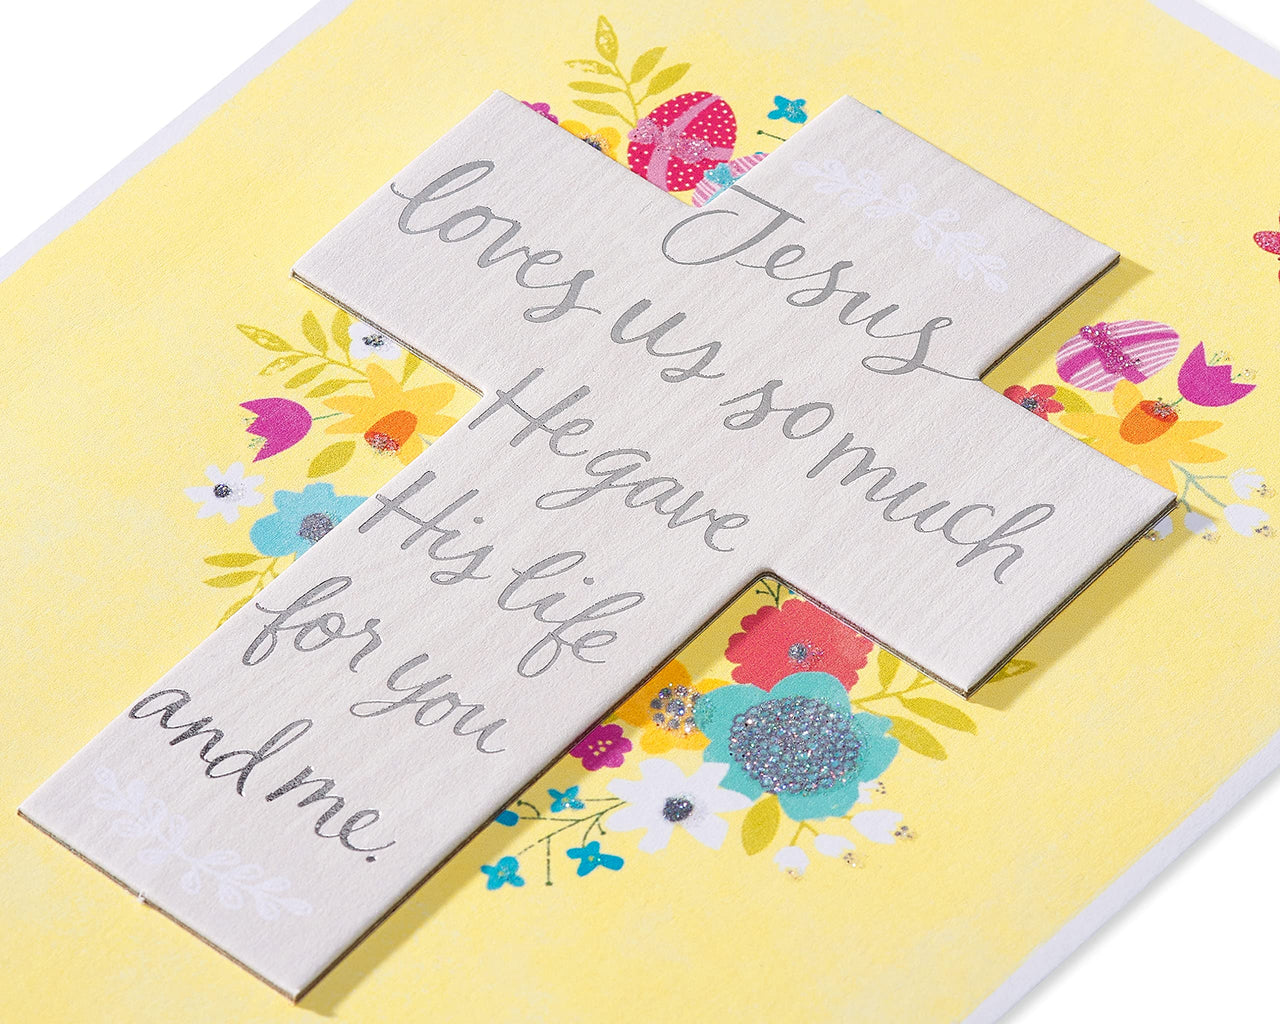 Jesus
loves us so much
He gave
His life
for you
and me.